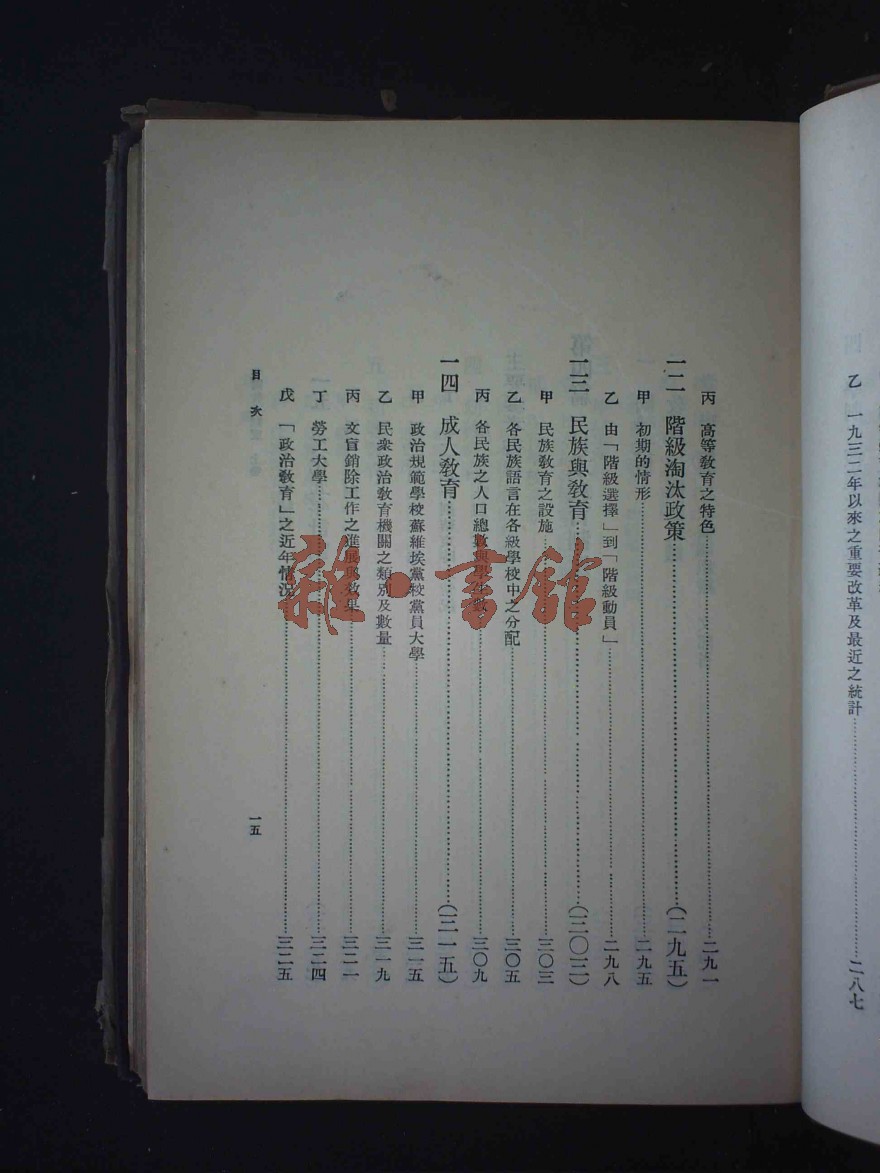 乙 一九三二年以來之重要改革及最近之統計……二八七
丙 高等教育之特色……二九一
一二 階級淘汰政策……（二九五）
甲 初期的情形……二九五
乙 由「階級選擇」到「階級動員」……二九八
一三 民族與教育……（三〇三）
甲 民族教育之設施……三〇三
乙 各民族語言在各級學校中之分配……三〇五
丙 各民族之人口總數與學生數……三〇九
一四 成人教育……（三一五）
甲 政治規範學校蘇維埃黨校黨員大學……三一五
乙 民衆政治教育機關之類別及數量……三一九
丙 文盲銷除工作之進展與效果……三二一
丁 勞工大學……三二四
戊 「政治教育」之近年情況……三二五
目次
一五
雜·書館